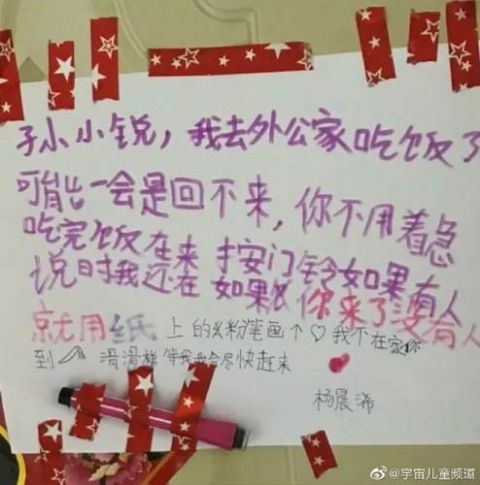 孙小小锐，我去外公家吃饭了
可能一会是回不来，你不用着急
吃完饭在来按门铃如果有人
说时我还在如果你来了没有人
就用纸上的粉笔画个♡我不在家你
到滑滑梯等我我会尽快赶来
杨晨浠
@宇宙儿童频道